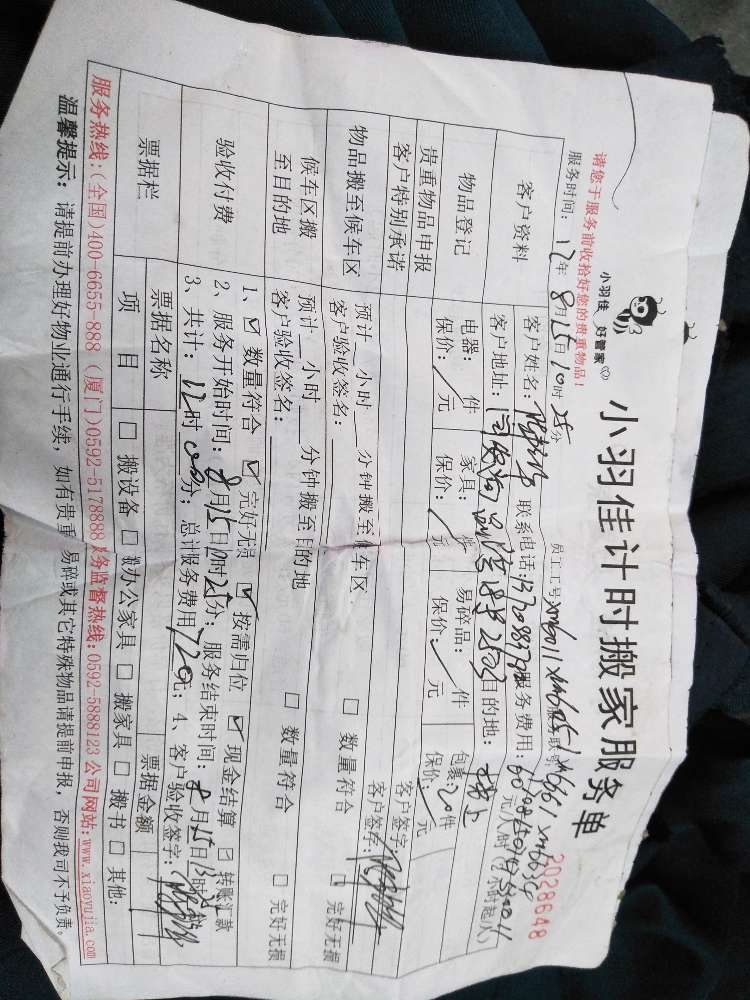 小羽佳 好管家
小羽佳计时搬家服务单
2028648
请您于服务前收拾好您的贵重物品!
服务时间: 17年8月15日10时25分 员工工号
客户资料 客户姓名: 联系电话: 服务费用: 元/人/时(2小时起/人)
客户地址: 目的地:
物品登记 电器: 件 家具: 件 易碎品: 件 包裹: 20件
保价: 元 保价: 元 保价: 元 保价: 元
贵重物品申报
客户特别承诺 客户签字:
物品搬至候车区 预计 小时 分钟搬至候车区 数量符合 完好无损
客户验收签名:
候车区搬至目的地 预计 小时 分钟搬至目的地 数量符合 完好无损
客户验收签名:
验收付费 1、数量符合 完好无损 按需归位 现金结算 转账汇款
2、服务开始时间: 8月15日10时25分; 服务结束时间: 8月15日
3、共计: 时 分; 总计服务费用720元; 4、客户验收签字:
票据栏 票据名称 票据金额
项目 搬设备 搬办公家具 搬家具 搬书 其他:
服务热线:(全国)400-6655-888 (厦门)0592-5178888 服务监督热线:0592-5888123 公司网站:www.xiaoyujia.com
温馨提示: 请提前办理好物业通行手续, 如有贵重易碎或其它特殊物品请提前申报, 否则我司不予负责。